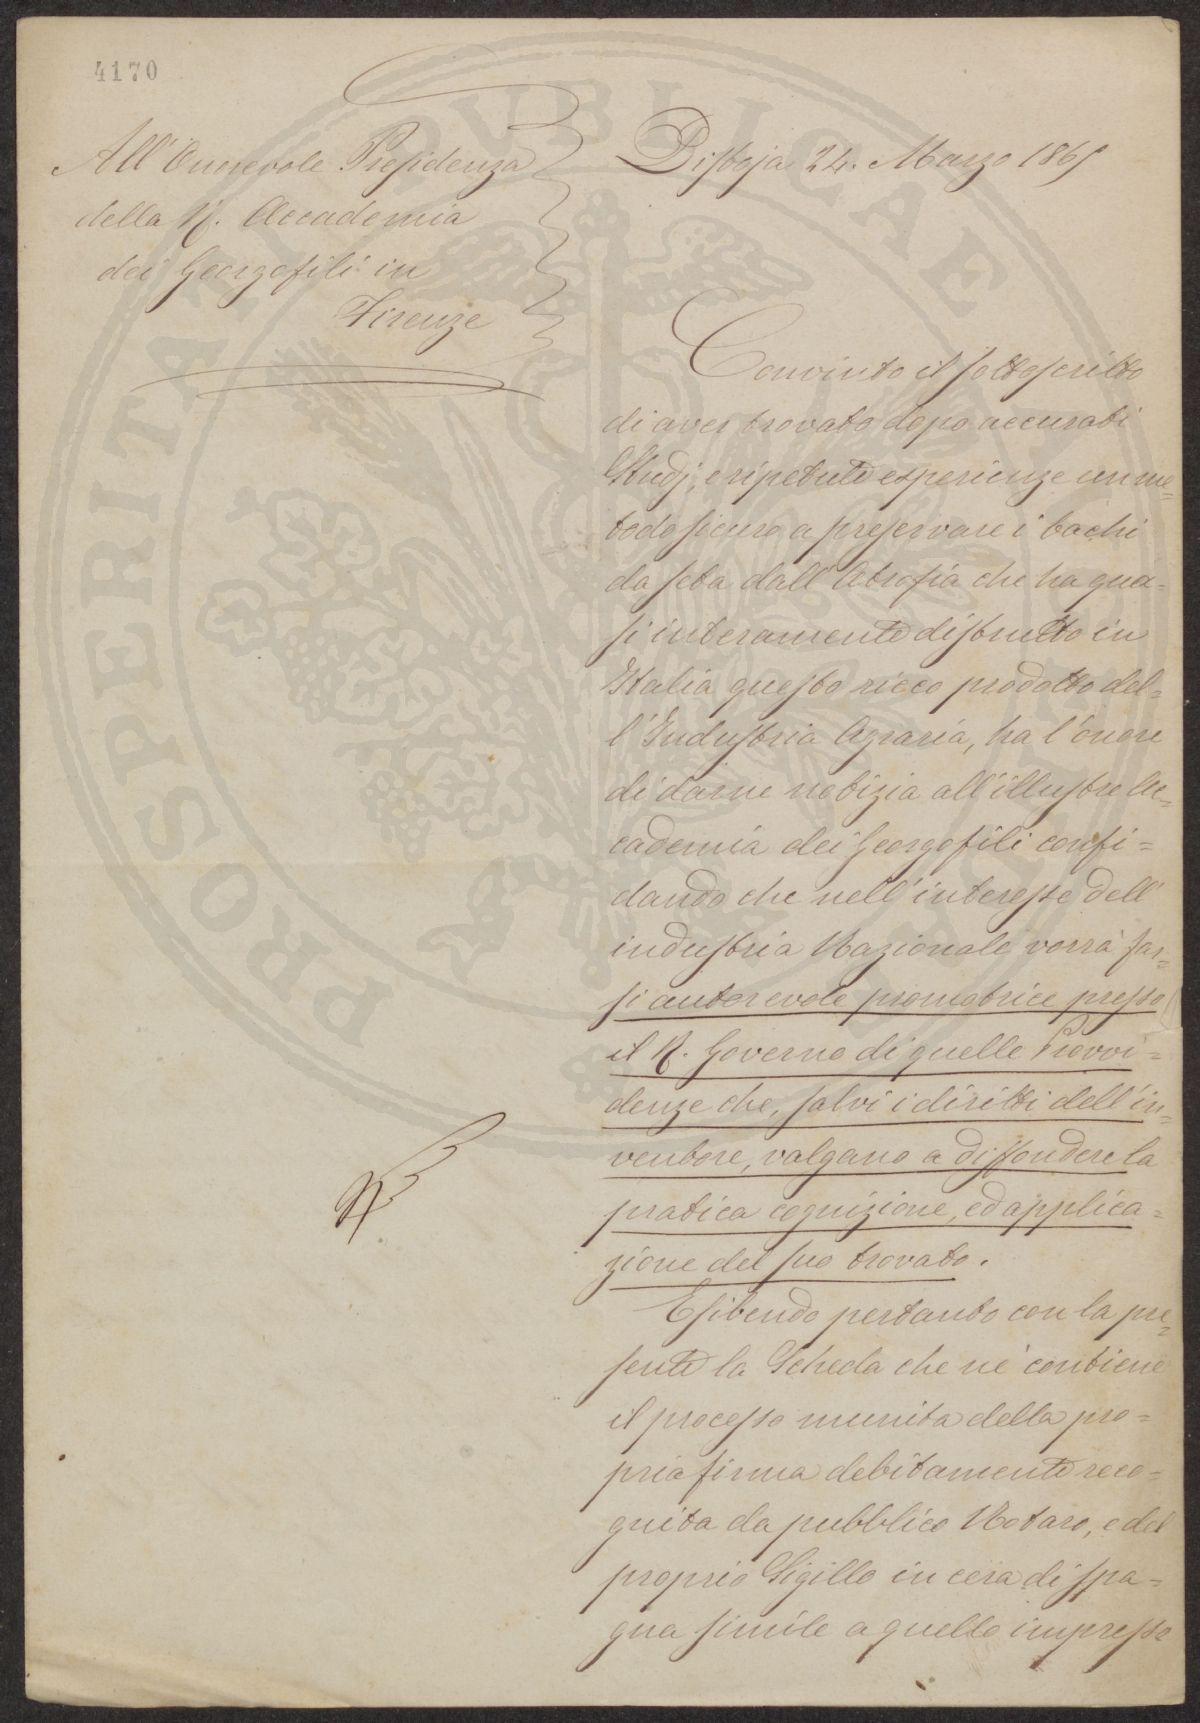 4170
All'Onorevole Presidenza
della R. Accademia
dei Georgofili in
Firenze
Pistoja 24. Marzo 1865
Convinto il sottoscritto
di aver trovato dopo accurati
Studj, e ripetute esperienze un me=
todo sicuro a preservare i bachi
da seta dall'Atrofia che ha qua=
si interamente distrutto in
Italia questo ricco prodotto del=
l'Industria Agraria, ha l'onore
di darne notizia all'illustre Ac=
cademia dei Georgofili confi=
dando che nell'interesse dell'
industria Nazionale vorrà far=
si autorevole promotrice presso
il R. Governo di quelle Provvi=
denze che, salvi i diritti dell'in=
ventore, valgano a diffondere la
pratica cognizione, ed applica=
zione del suo trovato.
Esibendo pertanto con la pre=
sente la Scheda che ne contiene
il processo munita della pro=
pria firma debitamente reco=
gnita da pubblico Notaro, e del
proprio Sigillo in cera di Spa=
gna simile a quello impresso
PROSPERITATI PVBLICAE